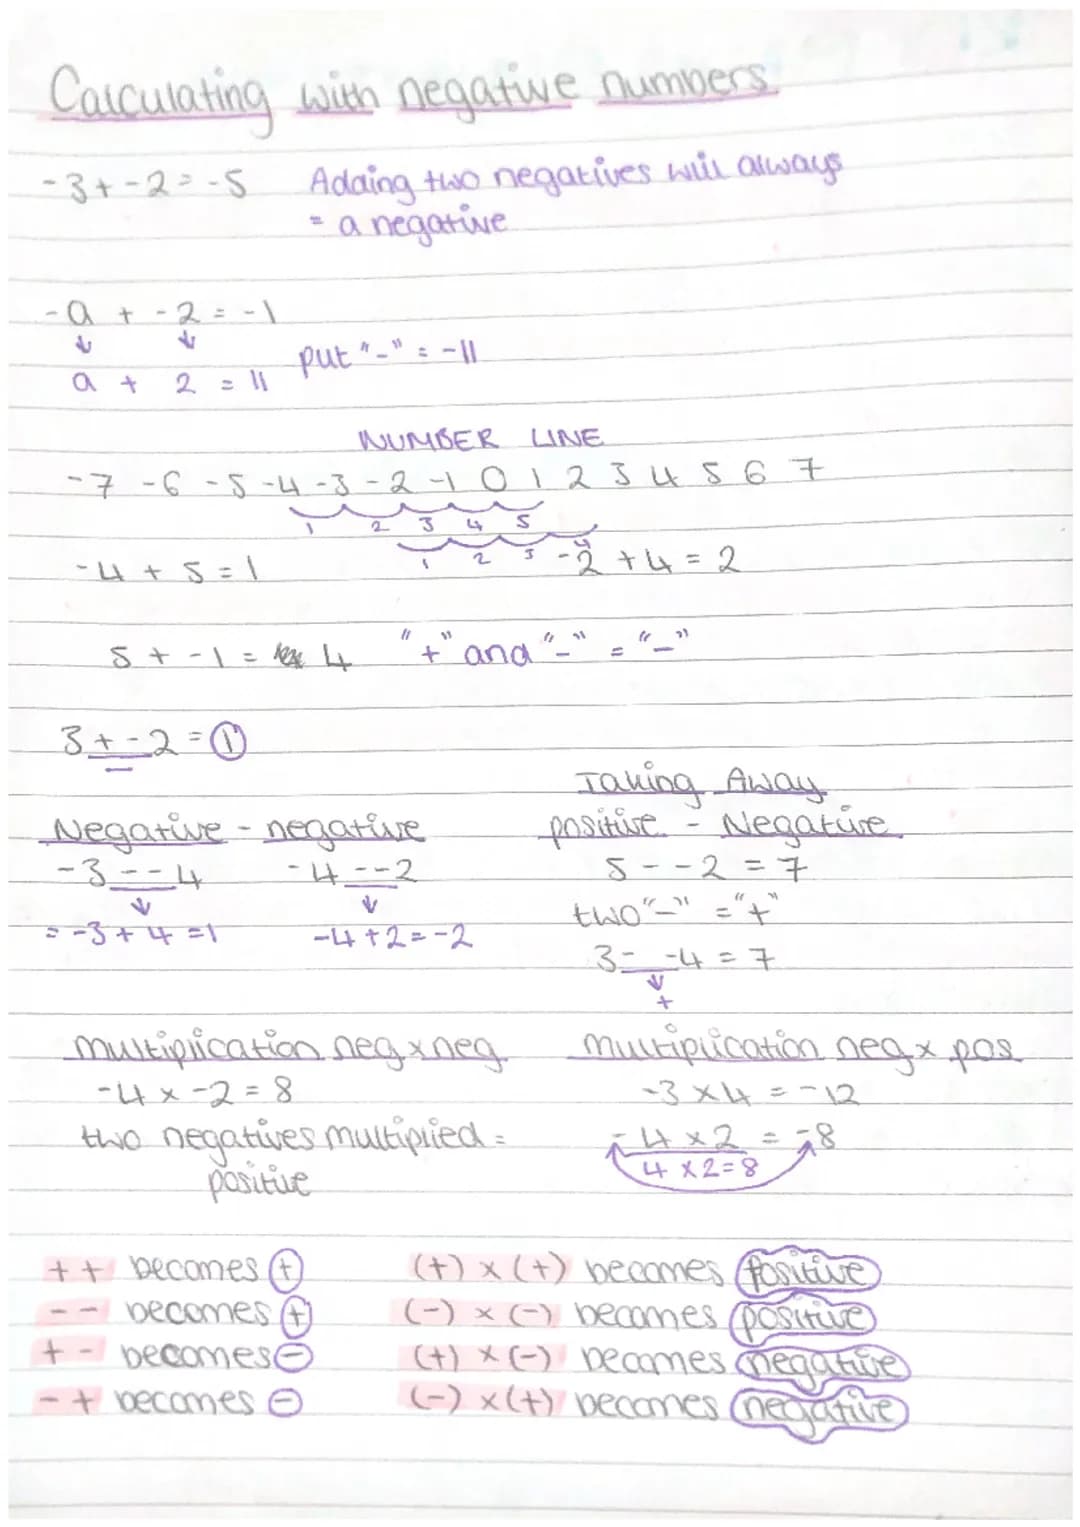 Calculating with negative numbers.
-3 + -2 = -5 Adding two negatives will always
= a negative
-a + -2 = -1
a + 2 = 11 put "-" = -11
NUMBER LINE
-7 -6 -5 -4 -3 -2 -1 0 1 2 3 4 5 6 7
1 2 3 4 5
1 2 3 4
-4 + 5 = 1 -2 + 4 = 2
5 + -1 = 4 "+" and "-" = "-"
3 + -2 = 1
Taking Away
Negative - negative positive - Negative
-3 - -4 -4 - -2 5 - -2 = 7
two "-" = "+"
= -3 + 4 = 1 -4 + 2 = -2
3 - -4 = 7
+
multiplication neg x neg multiplication neg x pos
-4 x -2 = 8 -3 x 4 = -12
two negatives multiplied = -4 x 2 = -8
positive 4 x 2 = 8
+ + becomes + (+) x (+) becomes positive
- - becomes + (-) x (-) becomes positive
+ - becomes - (+) x (-) becomes negative
- + becomes - (-) x (+) becomes negative